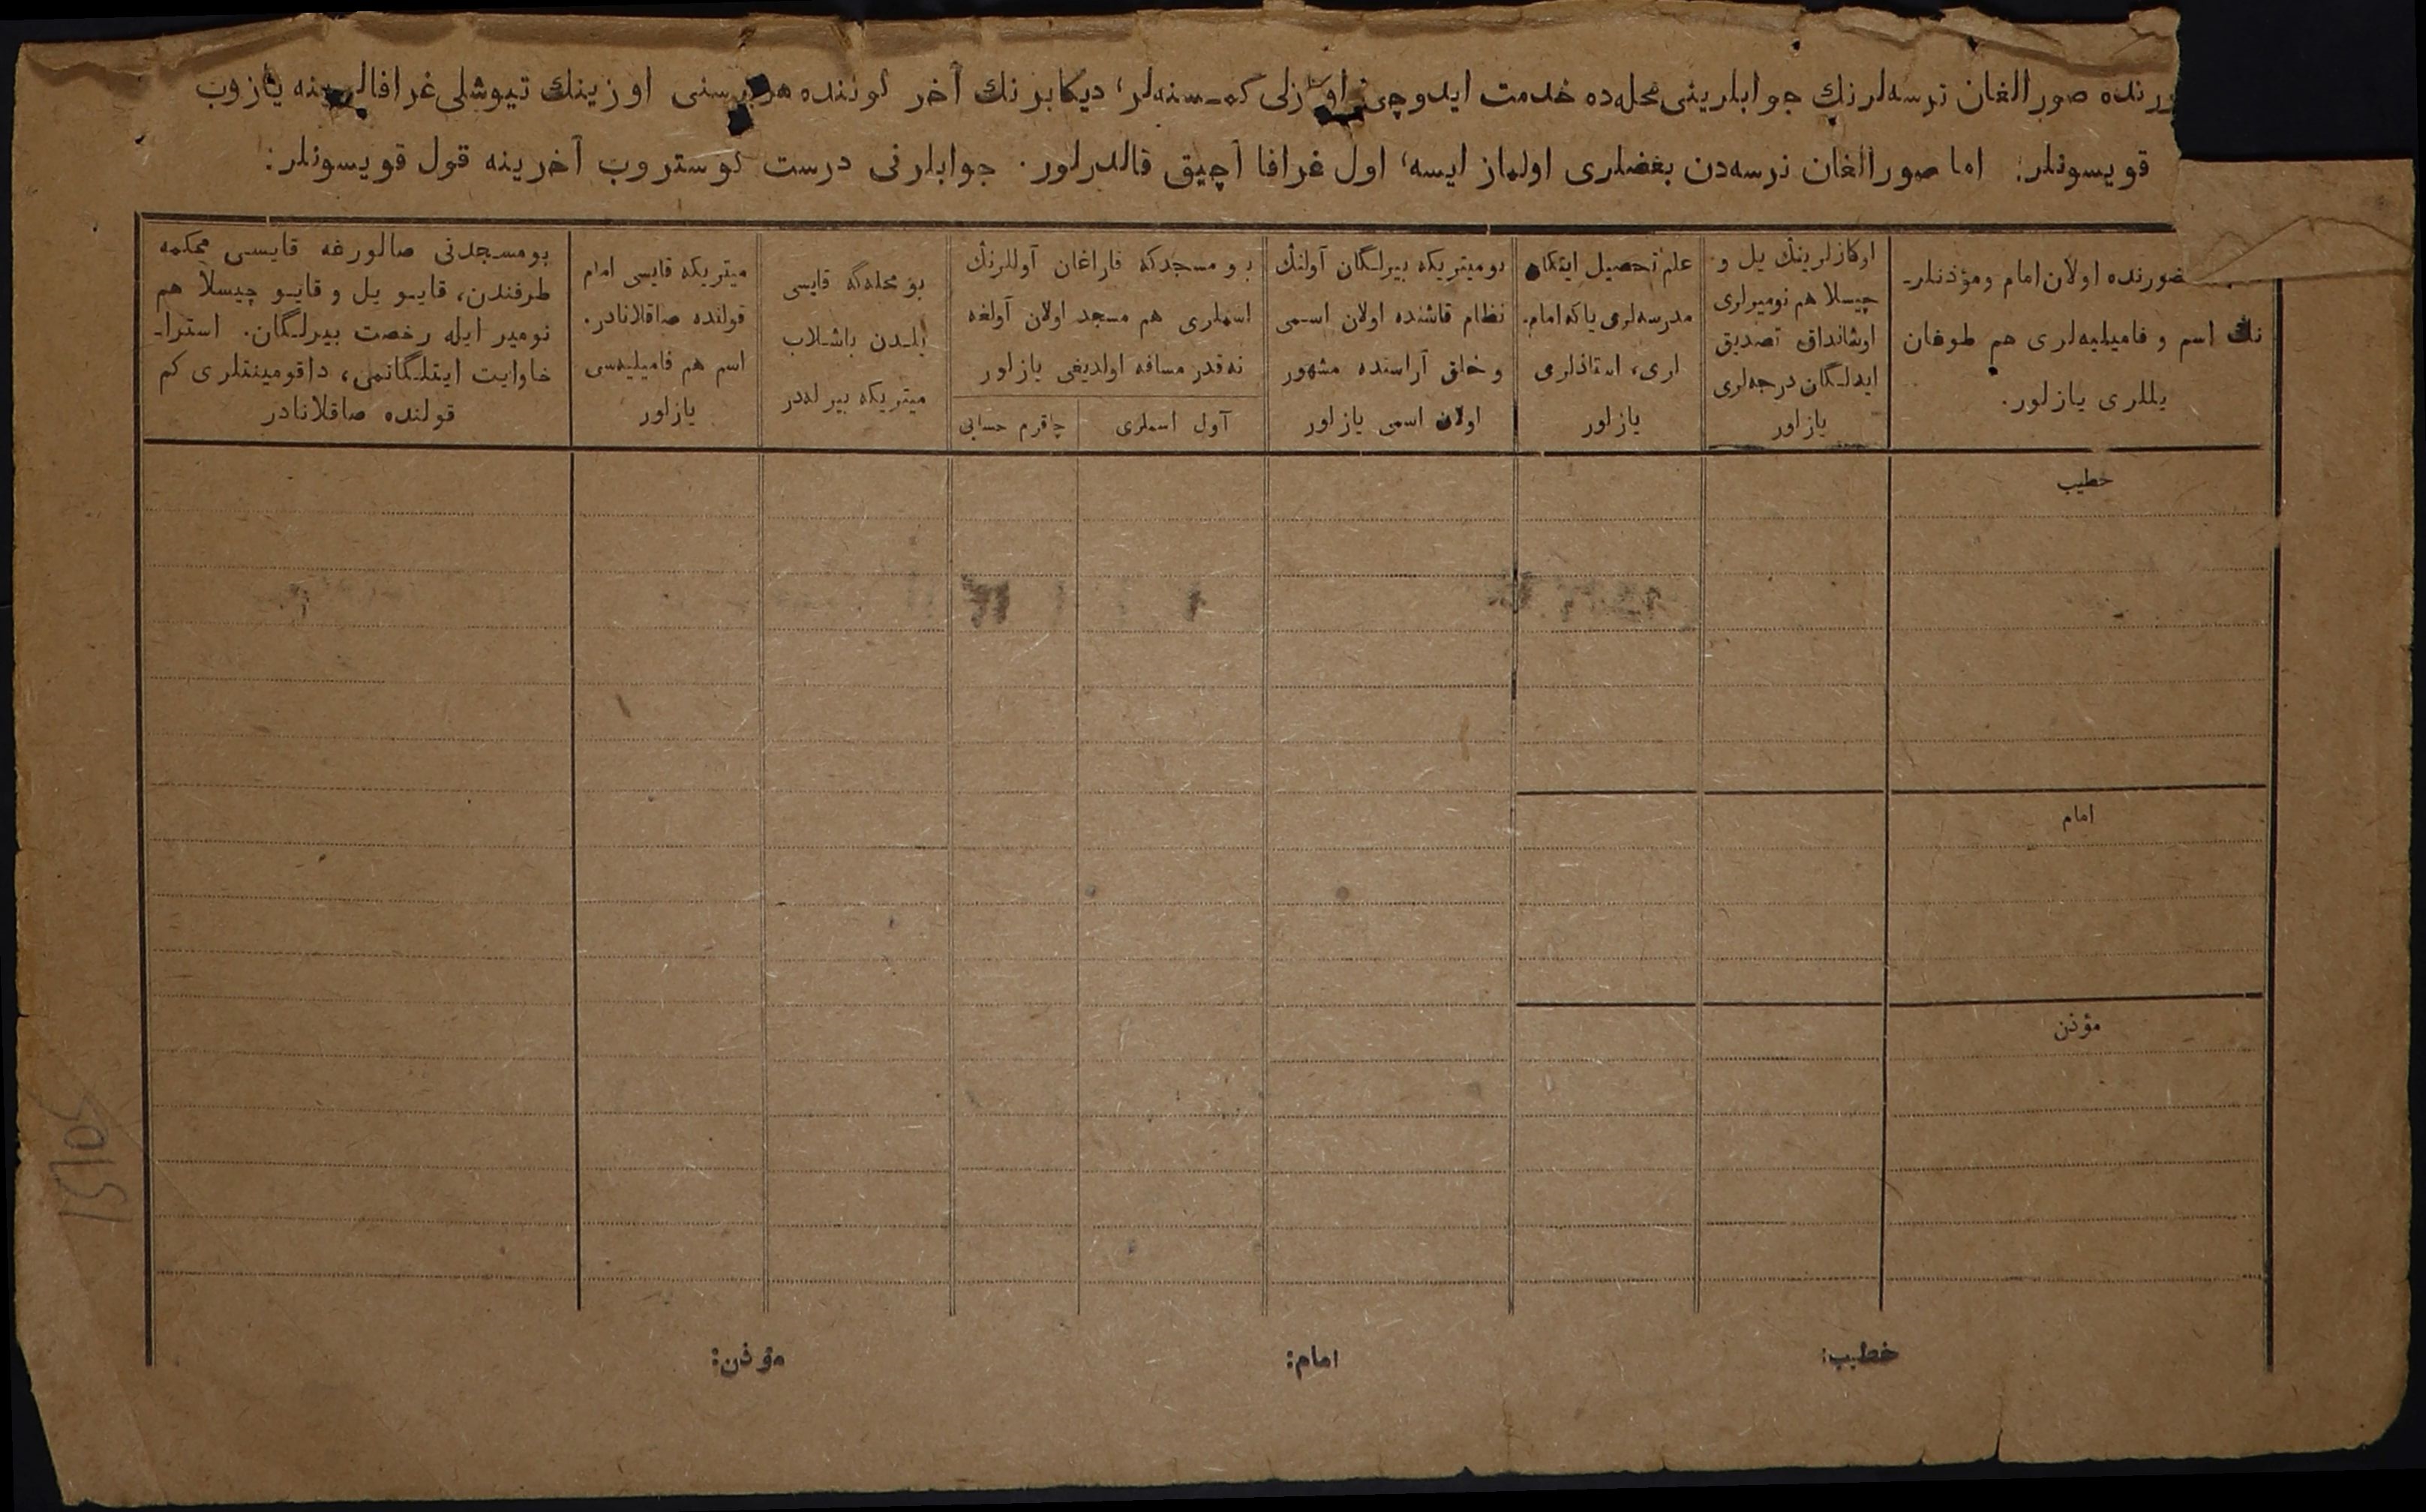 صورالغان نرسه‌لرنك جوابلرینی محله‌ده خدمت ایدوچی كمسنه‌لر، دیكابرنك آخر كوننده هر برسنی اوزینك تیوشلی غرافالرینه یازوب
قویسونلر: اما صورالغان نرسه‌دن بغضلری اولماز ایسه، اول غرافا آچیق قالدرلور. جوابلرنی درست كوستروب آخرینه قول قویسونلر:
ضورنده اولان امام ومؤذنلر-
نك اسم و فامیلیه‌لری هم طوغان
یللری یازلور.
اوكازلرینك یل و
چیسلا هم نومیرلری
اوشانداق تصدیق
ایدلـگان درجه‌لری
یازلور
علم تحصیل ایتكان
مدرسه‌لری یاكه امام-
لری، استاذلری
یازلور
بومیتریكه بیرلـگان آولنك
نظام قاشنده اولان اسمی
و خلق آراسنده مشهور
اولان اسمی یازلور
بو مسجدكه قاراغان آوللرنك
اسملری هم مسجد اولان آولغه
نه قدر مسافه اولدیغی یازلور
آول اسملری
چاقرم حسابی
بو محله‌گه قایسی
یلـدن باشـلاب
میتریكه بیرله‌در
میتریكه قایسی امام
قولنده صاقلانادر.
اسم هم فامیلیه‌سی
یازلور
بومسـجدنی صالورغه قایسـی محكمه
طرفندن، قایـو یل و قایـو چیسلا هم
نومیر ایله رخصت بیرلـگان. استرا-
خاوایت ایتلـگانمی، داقومینتلری كم
قولنده صاقلانادر
خطیب
امام
مؤذن
خطیب:
امام:
مؤذن: